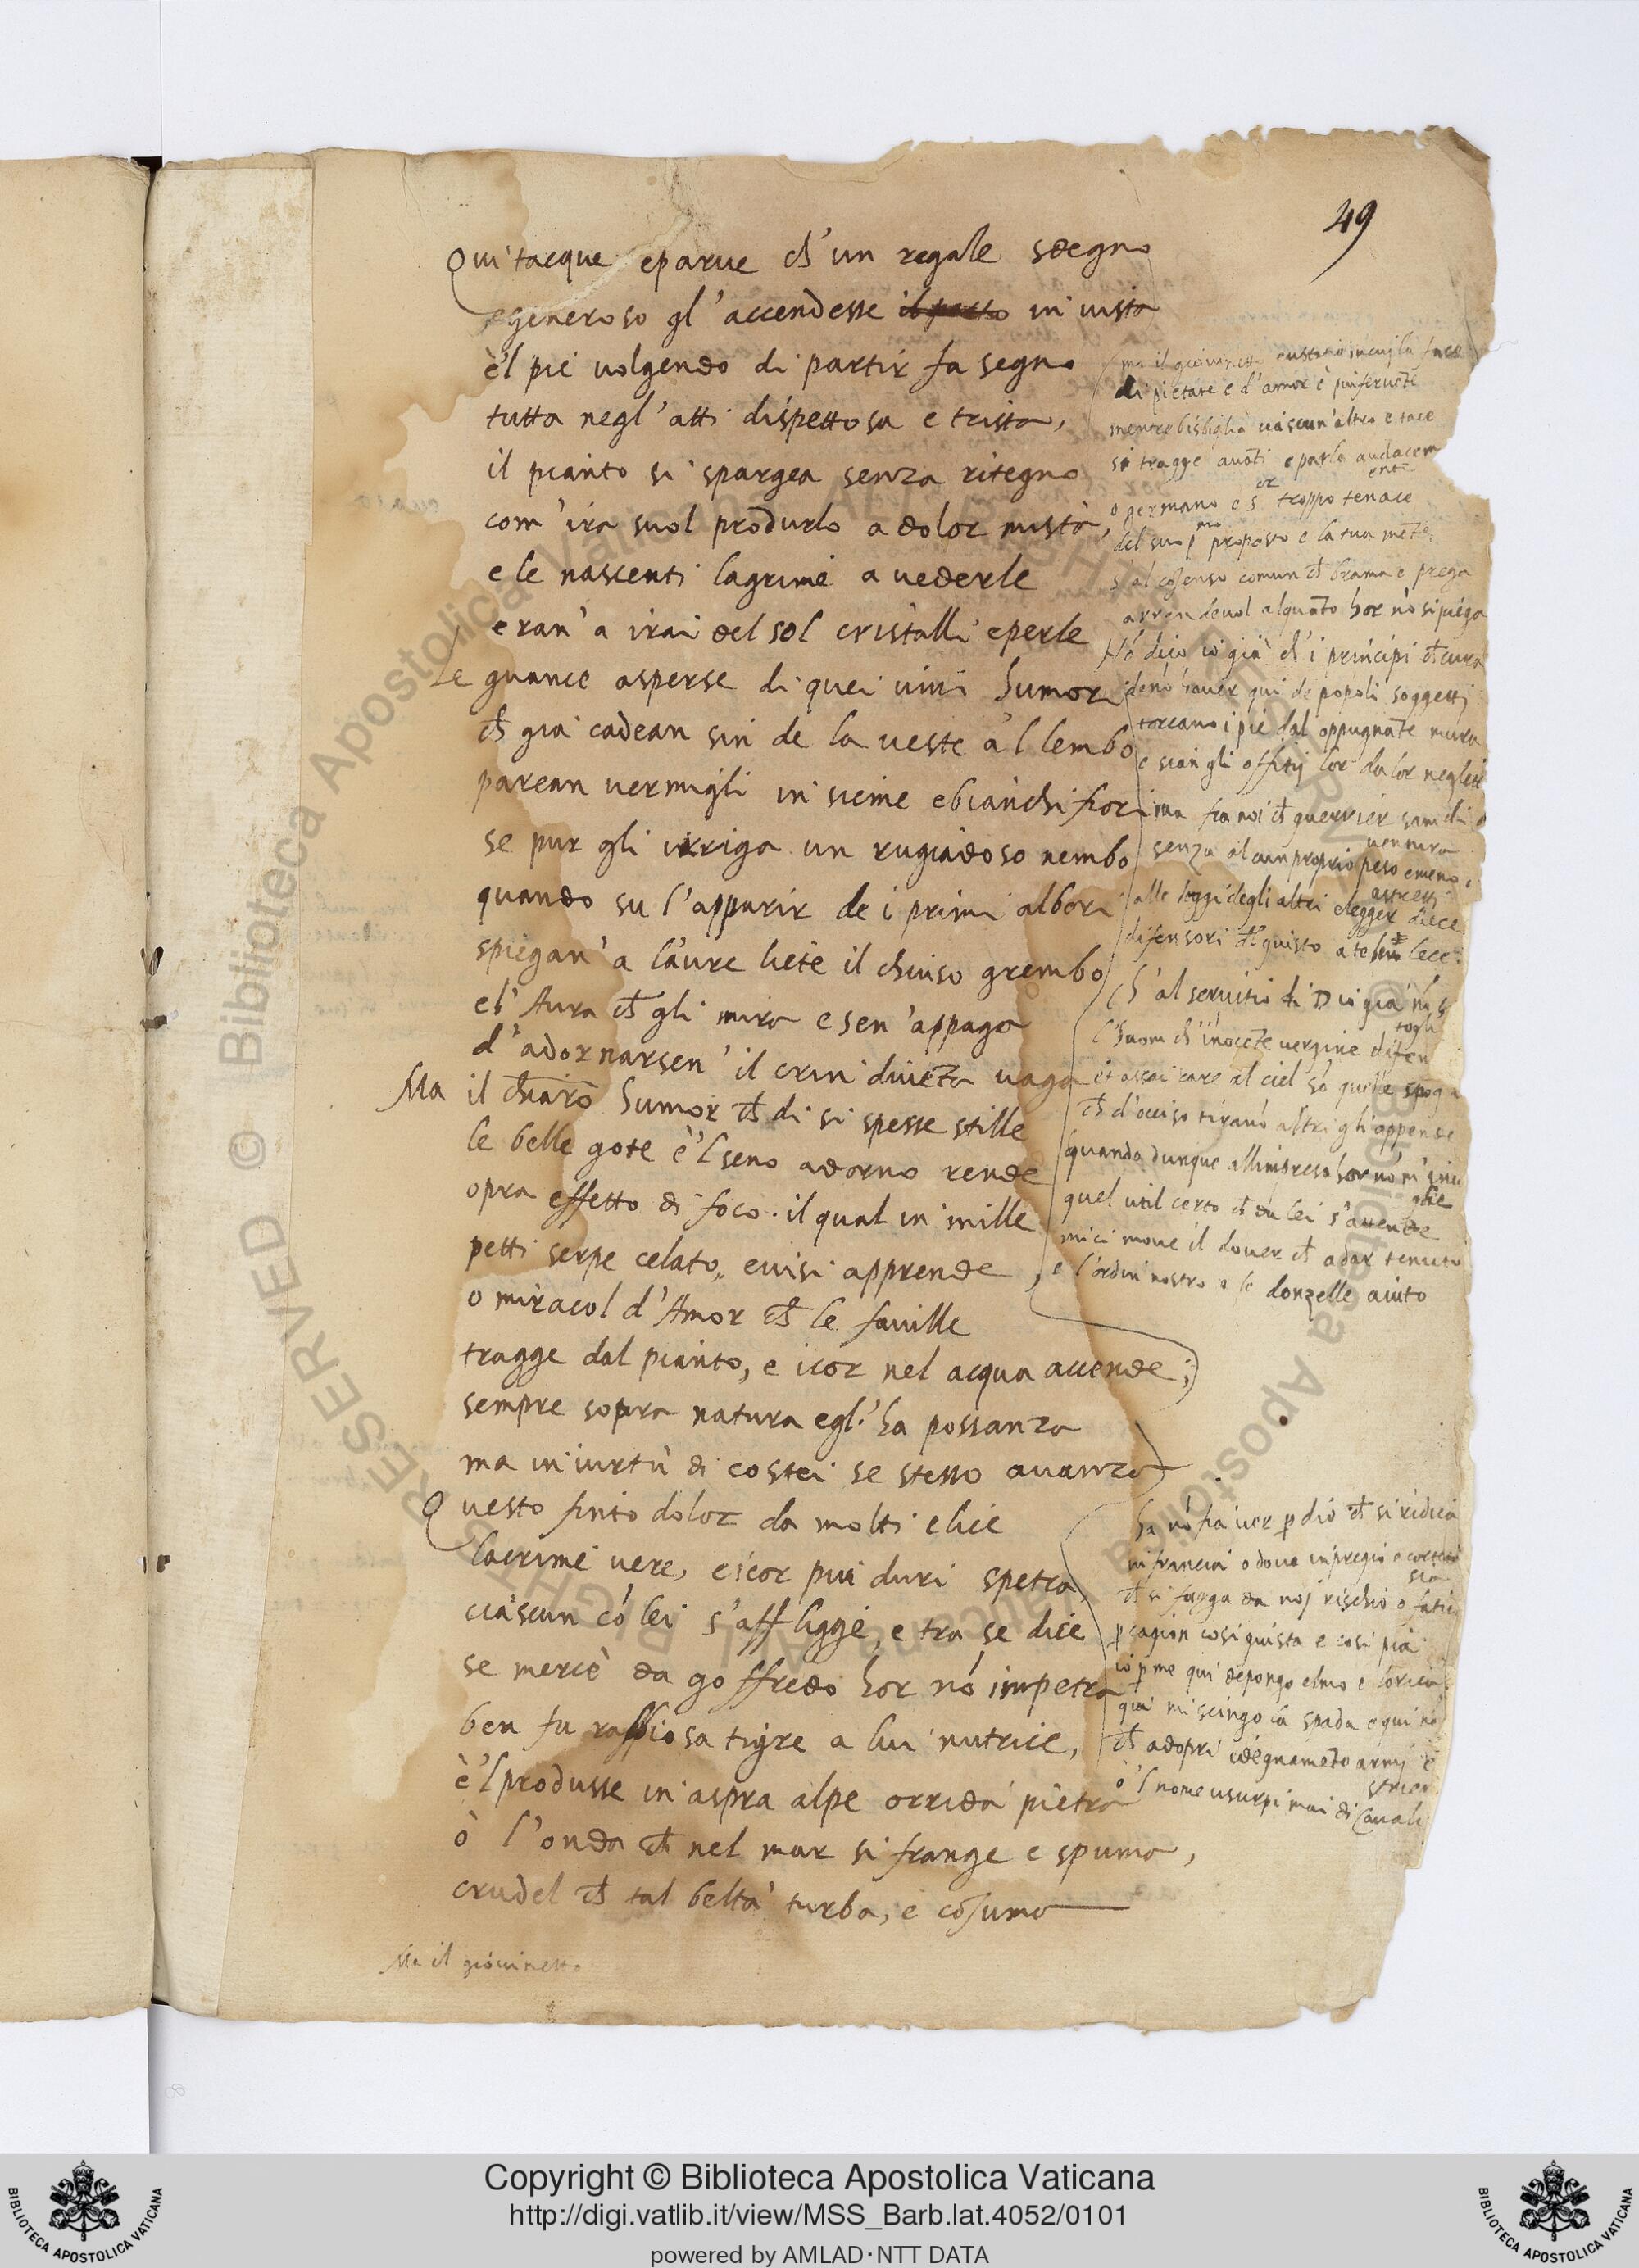 49
Qui tacque e parue ch'un regale sdegno
e generoso gl'accendesse il petto in uista
è'l pié uolgendo di partir fa segno
tutta negl'atti dispettosa e trista,
il pianto si spargea senza ritegno
com'ira suol produrlo a dolor mista,
e le nascenti lagrime a uederle
eran'a i rai del sol cristalli e perle
Le guance asperse di quei uiui humori
ch̄ già cadean sin de la ueste a'l lembo
parean uermigli insieme e bianchi fiori
se pur gli irriga un rugiadoso nembo
quando su l'apparir de i primi albori
spiegan'a l'aure liete il chiuso grembo
e l'Aura ch̄ gli mira e sen'appaga
d'adornarsen'il crin diuēta uaga
Ma il chiaro humor ch̄ di si spesse stille
le belle gote è'l seno adorno rende
opra effetto di foco. il qual in mille
petti serpe celato, e uisi apprende
o miracol d'Amor ch̄ le fauille
tragge dal pianto, e i cor nel acqua accende;
sempre sopra natura egl'ha possanza
ma in uirtù di costei se stesso auanza
Questo finto dolor da molti elice
lacrime uere, e i cor più duri spetra
ciascun cō lei s'affligge, e tra se dice
se mercè da goffredo hor nō impetra
ben fu rabbiosa tigre a lui nutrice,
è'l produsse in aspra alpe orrida pietra
ò l'onda ch̄ nel mar si frange e spuma,
crudel ch̄ tal beltà turba, e cōsuma
Ma il giouinetto
ma il giouinetto eustatio in cui la face
di pietate e d'amor è più feruēte
mentre bisbiglia ciascun'altro e tace
si tragge auāti e parla audacem
ente
o germano e s.or troppo tenace
del suo p.mo proposto e la tua mēte
s'al cōsenso comun ch̄ brama e prega
arrendeuol alquāto hor nō si piega
Nō dico io già ch'i principi ch̄ cura
denō hauer qui de popoli soggetti
torcano i pié dal oppugnate mura
e sian gli offitij lor da lor neglett
ma fra noi ch̄ guerrier siam di
uentura
senza alcun proprio peso e meno
astretti
alle leggi degli altri elegger diece
difensori del giusto a te ben lece
Ch'al seruitio di Dio già nō si
togli
l'huom ch'inocēte uergine difen
et assai care al ciel sō quelle spogli
ch̄ d'occiso tiranō altri gli appende
quando dunque all'impresa hor nō m'inu
oglie
quel util certo ch̄ da lei s'attende
mi ci moue il douer ch̄ a dar tenuto
e l'ordin nostro a le donzelle aiuto
ha nō fia uer p dio ch̄ si ridica
in francia o doue in pregio e cortesia
ch̄ si fugga da noi rischio o fatic
p cagion cosi giusta e cosi pia
io p me qui depongo elmo e lorica
qui mi scingo la spada e qui nō
ch̄ adopri īdegnamēto armi e
strier
ò'l nome usurpi mai di Caualli
© Biblioteca Apostolica Vaticana ALL RIGHTS RESERVED
Copyright © Biblioteca Apostolica Vaticana
http://digi.vatlib.it/view/MSS_Barb.lat.4052/0101
powered by AMLAD·NTT DATA
BIBLIOTECA APOSTOLICA VATICANA
BIBLIOTECA APOSTOLICA VATICANA